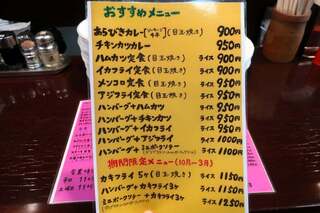 おすすめメニュー
あらびきカレー (目玉焼き) 900円
チキンカツカレー 950円
ハムカツ定食 (目玉焼き) ライス 900円
イカフライ定食 (目玉焼き) ライス 900円
メンコロ定食 (目玉焼き) ライス 950円
アジフライ定食 (目玉焼き) ライス 950円
ハンバーグ+ハムカツ ライス 950円
ハンバーグ+チキンカツ ライス 950円
ハンバーグ+イカフライ ライス 950円
ハンバーグ+アジフライ ライス 1100円
ハンバーグ+ミニポークソテー ライス 1100円
期間限定メニュー(10月〜3月)
カキフライ 5ヶ(目玉焼き) ライス 1150円
ハンバーグ+カキフライ3ヶ ライス 1150円
ミニポークソテー+カキフライ3ヶ ライス 1250円